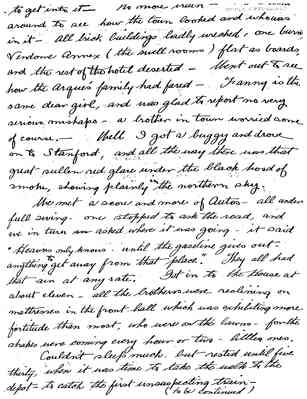 to get into it — No more train
around to see how the town looked and who was
in it — All brick buildings badly wrecked, one being
Vendome Annex (the swell rooms) flat as boards
and the rest of the hotel deserted — Went out to see
how the Argues family had fared — Fanny is the
same dear girl, and was glad to report no very
serious mishaps — a brother in town worried some
of course. — Well I got a buggy and drove
on to Stanford, and all the way there was that
great sullen red glare under the black hood of
smoke, showing plainly the northern sky.
We met a score and more of Autos — all under
full swing — one stopped to ask the road, and
we in turn asked where it was going — it said
"Heavens only knows — until the gasoline gives out —
anything to get away from that place." They all had
that air at any rate. Got in to the house at
about eleven — all the brothers were reclining on
mattresses in the front hall which was exhibiting more
fortitude than most, who were on the lawns — for the
shakes were coming every hour or two — little ones.
Couldn't sleep much, but rested until five
thirty, when it was time to take the walk to the
depot — to catch the first unsuspecting train —
(to be continued)